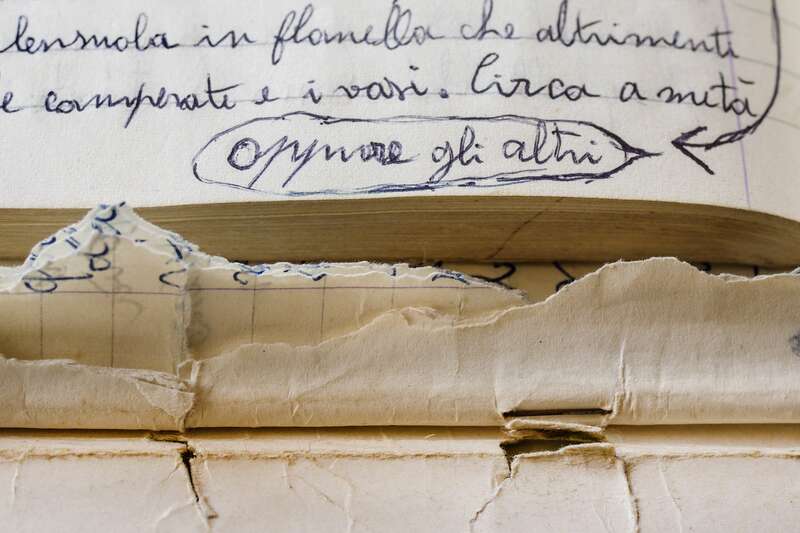 lensuola in flanella che altrimenti
e comperate e i vasi. Circa a metà
oppure gli altri